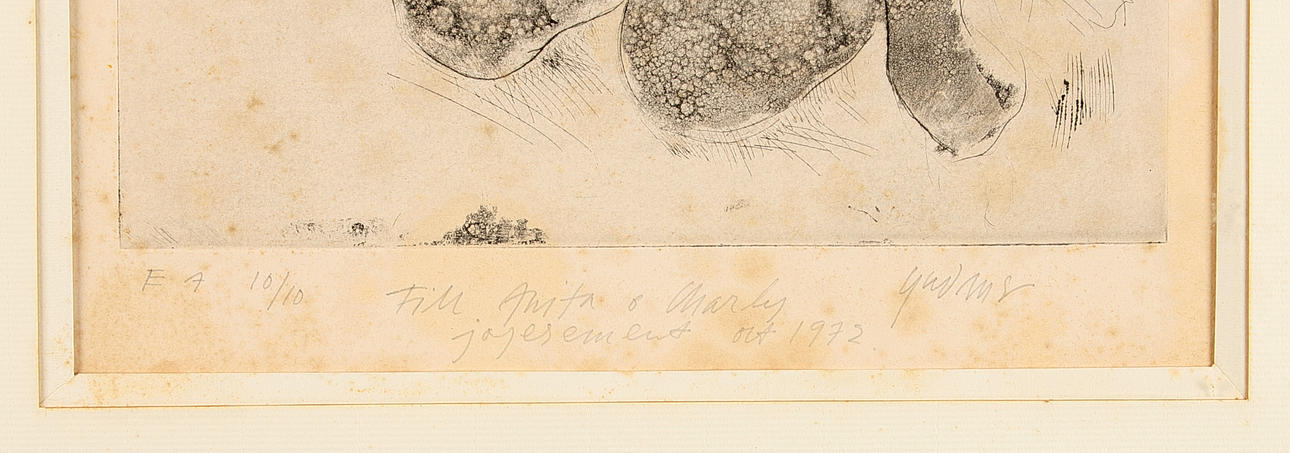 E A 10/10 Till Anita & Charly
joyesement oct 1972